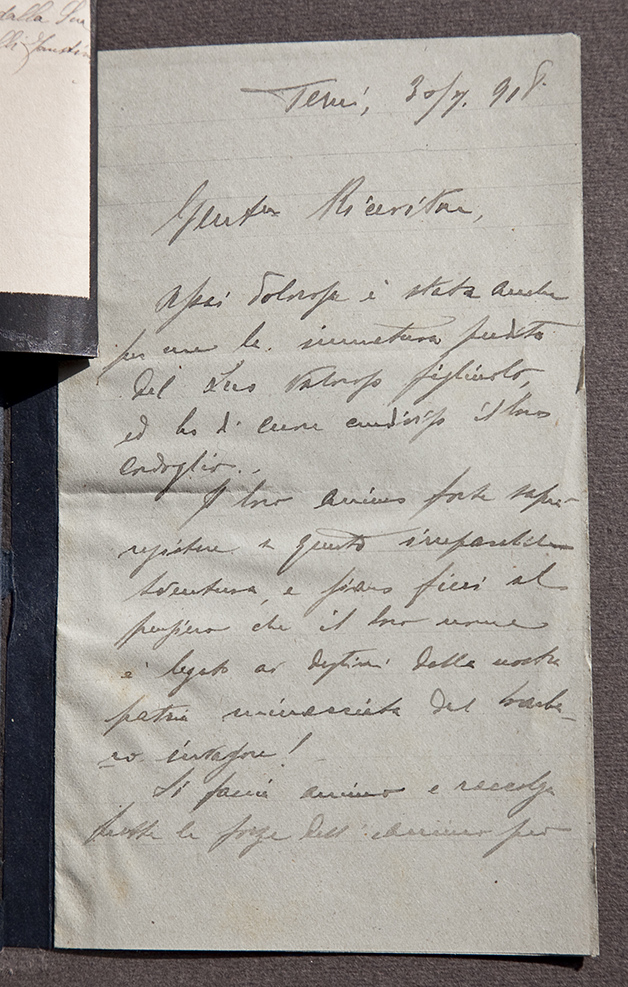 dalla Sua
Terni, 30/7. 918.
Ricevitore,
Assai dolorosa è stata anche
per me la immatura perdita
del Suo valoroso figliuolo,
ed ho di cuore condiviso il loro
cordoglio.
Il loro animo forte saprà
resistere a questo irreparabile
sventura, e siano fieri al
pensiero che il loro nome
è legato ai destini della nostra
patria minacciata dal barba-
ro invasore!
Si faccia animo e raccolga
tutte le forze dell'animo per